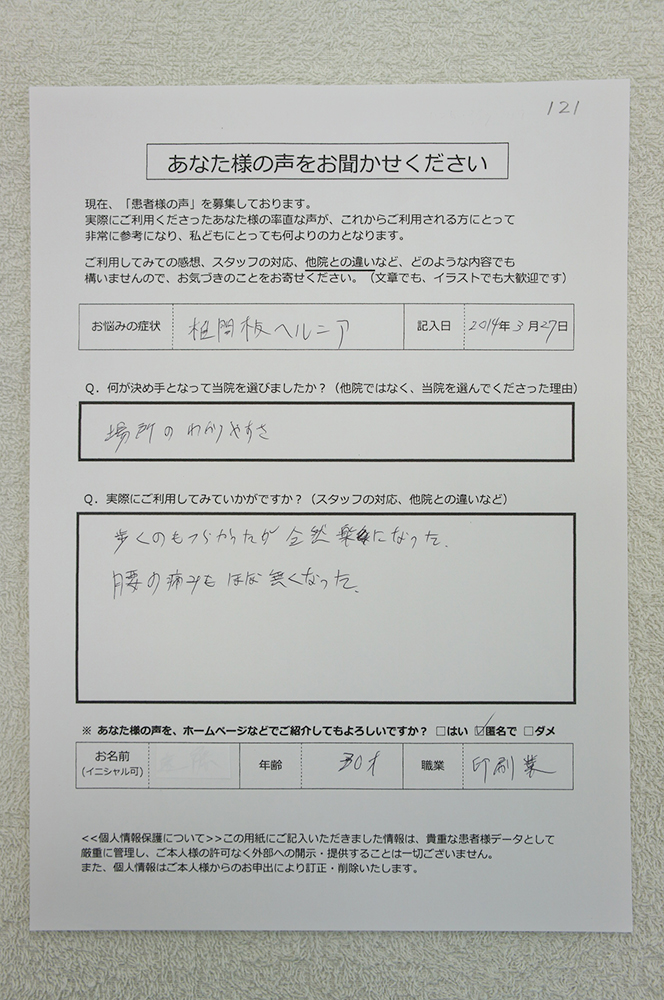 121
あなた様の声をお聞かせください
現在、「患者様の声」を募集しております。
実際にご利用くださったあなた様の率直な声が、これからご利用される方にとって
非常に参考になり、私どもにとっても何よりの力となります。
ご利用してみての感想、スタッフの対応、他院との違いなど、どのような内容でも
構いませんので、お気づきのことをお寄せください。（文章でも、イラストでも大歓迎です）
お悩みの症状 椎間板ヘルニア 記入日 2014年3月27日
Q．何が決め手となって当院を選びましたか？（他院ではなく、当院を選んでくださった理由）
場所のわかりやすさ
Q．実際にご利用してみていかがですか？（スタッフの対応、他院との違いなど）
歩くのもつらかったが全然楽になった。
腰の痛みもほぼ無くなった。
※ あなた様の声を、ホームページなどでご紹介してもよろしいですか？ □はい ☑匿名で □ダメ
お名前 年齢 30才 職業 印刷業
(イニシャル可)
<<個人情報保護について>>この用紙にご記入いただきました情報は、貴重な患者様データとして
厳重に管理し、ご本人様の許可なく外部への開示・提供することは一切ございません。
また、個人情報はご本人様からのお申出により訂正・削除いたします。